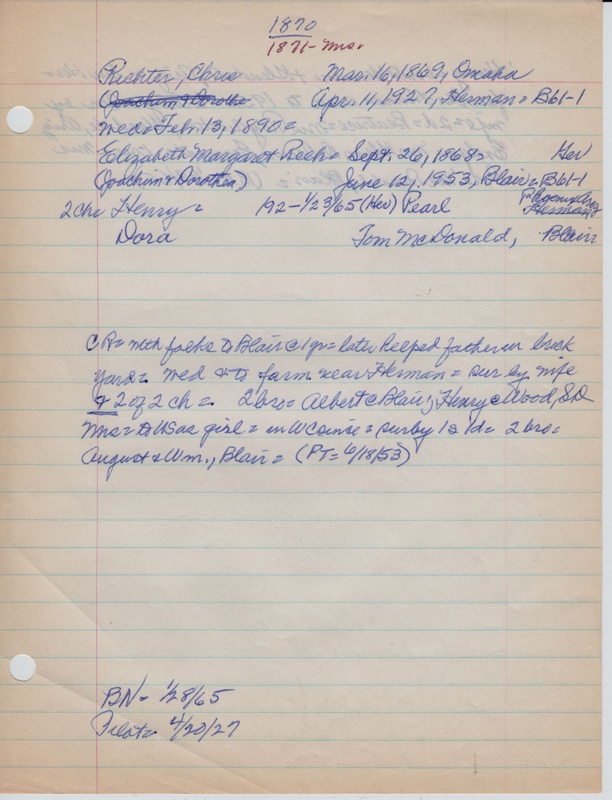 1870
1871- Mrs.
Richter, Chris Mar. 16, 1869, Omaha
(Joachim & Dorothe Apr. 11, 1927, Herman = B61-1
Wed = Feb. 13, 1890 =
Elizabeth Margaret Rech = Sept. 26, 1868 = Ger
(Joachim & Dorothea) June 12, 1953, Blair = B61-1
2 ch = Henry = '92 - 1/23/65 (Her) Pearl Phoenix, Ariz Herman
Dora Tom McDonald, Blair
CR = with folks to Blair @ 1 yr = later helped father in brick
yard = wed & to farm near Herman = sur by wife
& 2 of 2 ch = 2 bro = Albert @ Blair; Henry @ Wood, SD
Mrs = to US as girl = in W C since = sur by 1 s 1 d = 2 bro =
August & Wm., Blair = (PT = 6/18/53)
BN - 1/28/65
Pilot = 4/20/27